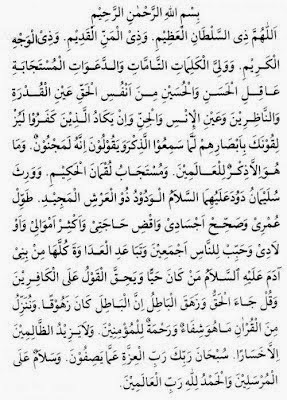 بِسْمِ اللهِ الرَّحْمٰنِ الرَّحِيْمِ
اَللّٰهُمَّ ذِى السُّلْطَانِ الْعَظِيْمِ. وَذِى الْمَنِّ الْقَدِيْمِ. وَذِى الْوَجْهِ
الْكَرِيْمِ. وَوَلِيِّ الْكَلِمَاتِ التَّامَّاتِ وَالدَّعَوَاتِ الْمُسْتَجَابَةِ
عَاقِلِ الْحَسَنِ وَالْحُسَيْنِ مِنْ اَنْفُسِ الْحَقِّ عَيْنِ الْقُدْرَةِ
وَالنَّاظِرِيْنَ وَعَيْنِ الْاِنْسِ وَالْجِنِّ وَاِنْ يَكَادُ الَّذِيْنَ كَفَرُوْا لَيُزْ
لِقُوْنَكَ بِاَبْصَارِهِمْ لَمَّا سَمِعُوا الذِّكْرَ وَيَقُوْلُوْنَ اِنَّهُ لَمَجْنُوْنٌ. وَمَا
هُوَ اِلَّا ذِكْرٌ لِلْعَالَمِيْنَ. وَمُسْتَجَابُ لُقْمَانَ الْحَكِيْمِ. وَوَرِثَ
سُلَيْمَانُ دَاوُدَ عَلَيْهِمَا السَّلَامُ الْوَدُوْدُ ذُو الْعَرْشِ الْمَجِيْدِ. طَوِّلْ
عُمْرِيْ وَصَحِّحْ اَجْسَادِيْ وَاقْضِ حَاجَتِيْ وَاَكْثِرْ اَمْوَالِيْ وَاَوْ
لَادِيْ وَحَبِّبْ لِلنَّاسِ اَجْمَعِيْنَ. وَتَبَاعَدِ الْعَدَاوَةَ كُلَّهَا مِنْ بَنِيْ
اٰدَمَ عَلَيْهِ السَّلَامُ مَنْ كَانَ حَيًّا وَيَحِقَّ الْقَوْلُ عَلَى الْكَافِرِيْنَ
وَقُلْ جَاءَ الْحَقُّ وَزَهَقَ الْبَاطِلُ اِنَّ الْبَاطِلَ كَانَ زَهُوْقًا. وَنُنَزِّلُ
مِنَ الْقُرْاٰنِ مَا هُوَ شِفَاءٌ وَرَحْمَةٌ لِلْمُؤْمِنِيْنَ. وَلَا يَزِيْدُ الظَّالِمِيْنَ
اِلَّا خَسَارًا. سُبْحَانَ رَبِّكَ رَبِّ الْعِزَّةِ عَمَّا يَصِفُوْنَ. وَسَلَامٌ عَلَى
الْمُرْسَلِيْنَ وَالْحَمْدُ لِلّٰهِ رَبِّ الْعَالَمِيْنَ.